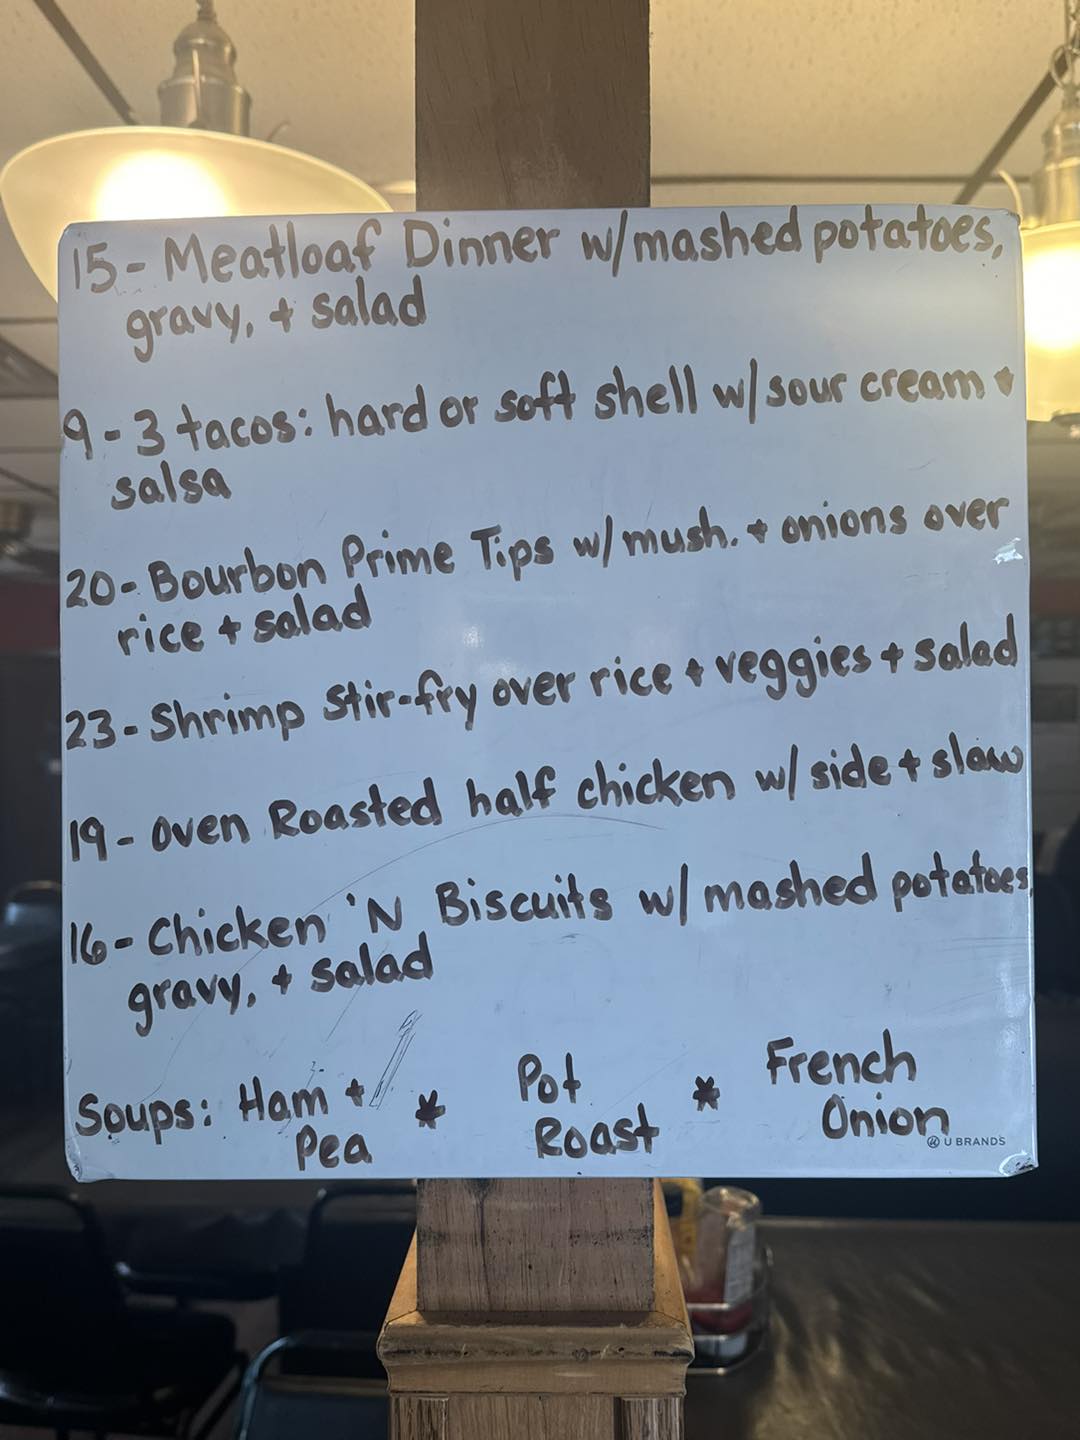 15- Meatloaf Dinner w/mashed potatoes,
gravy, + salad
9 - 3 tacos: hard or soft shell w/sour cream +
salsa
20- Bourbon Prime Tips w/mush. + onions over
rice + salad
23- Shrimp Stir-fry over rice + veggies + salad
19- Oven Roasted half chicken w/ side + slaw
16- Chicken 'N Biscuits w/ mashed potatoes,
gravy, + salad
Soups: Ham + Pea * Pot Roast * French Onion
U BRANDS